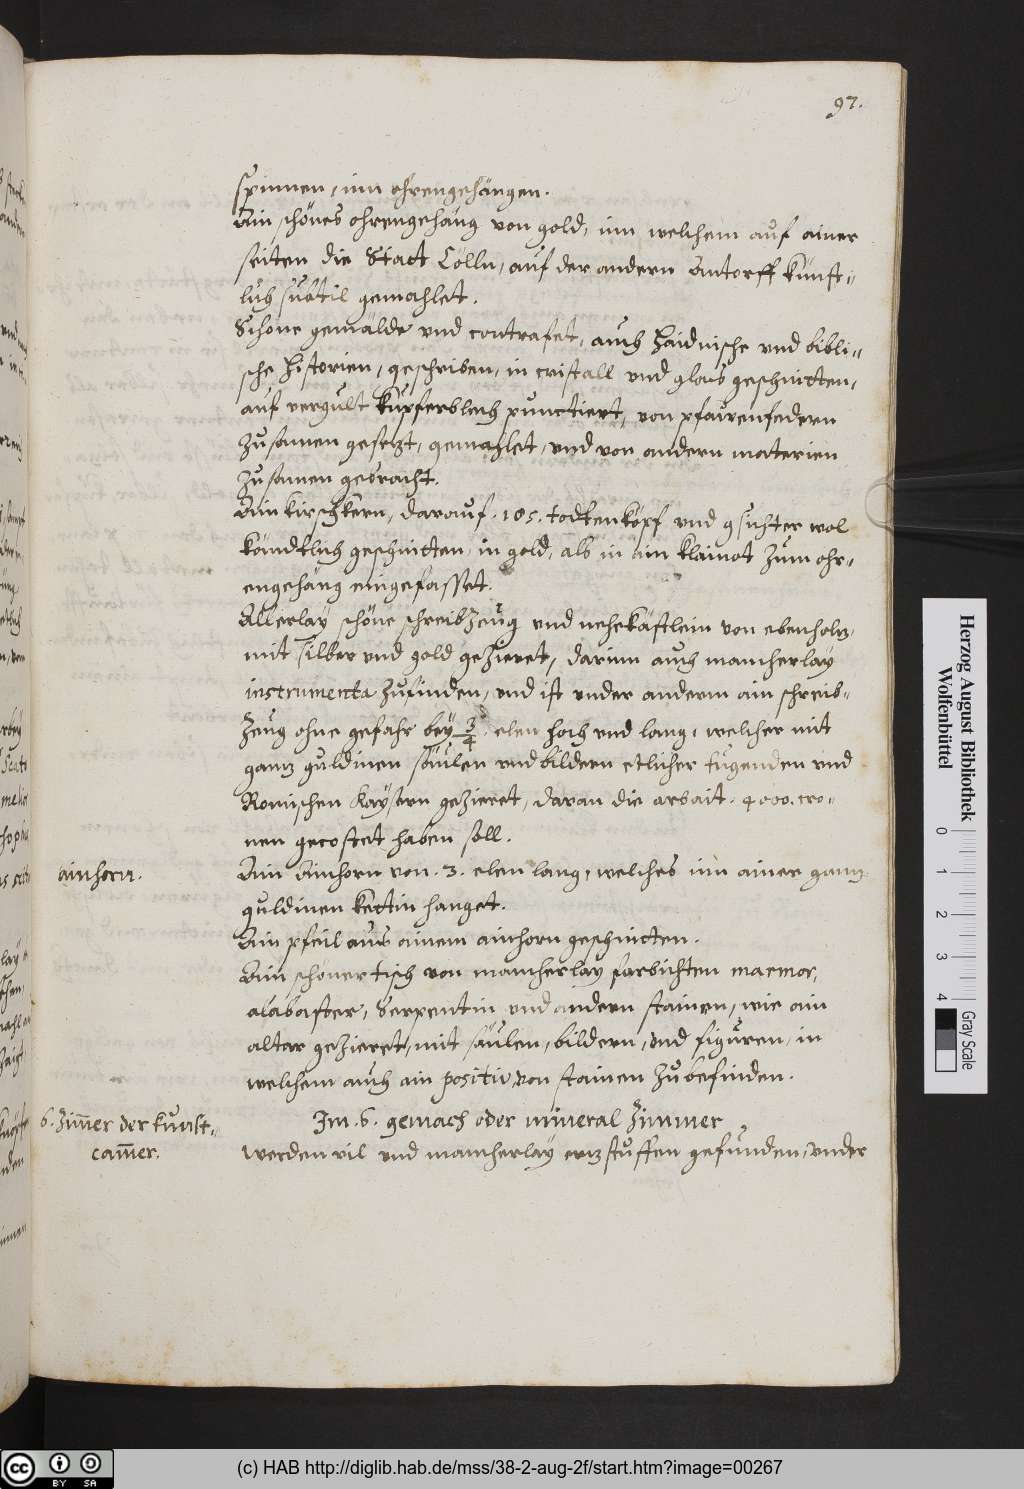 97.
spinnen, inn ohrengehängen.
Ain schönes ohrengehäng von gold, inn welchem auf ainer
seiten die Statt Cölln, auf der andern Antorff künst-
lich subtil gemahlet.
Schöne gemälde vnd contrafet, auch Haidnische vnd bibli-
sche Historien, geschriben, in cristall vnd glas geschnitten,
auf vergült kupferblech punctiert, von pfauenfedern
zusamen gesetzt, gemahlet, vnd von andern materien
zusamen gebracht.
Ain kirschkern, darauf .185. todtenköpf vnd gsichter wol
köndtlich geschnitten, in gold, als in ain klainot zum ohr-
engehäng eingefasset.
Allerlay schöne schreibzeüg vnd nehekästlein von ebenholz,
mit silber vnd gold gezieret, darinn auch mancherlay
instrumenta zufinden, vnd ist vnder anderm ain schreib-
zeug ohne gefahr bey 3/4. elen hoch vnd lang, welcher mit
ganz guldinen säulen vnd bildern etlicher tugenden vnd
Römischen Kaysern gezieret, daran die arbait .4000. cro-
nen gecostet haben soll.
ainhorn.
Ain Ainhorn von .3. elen lang, welches inn ainer ganz
guldinen kettin hanget.
Ain pfeil aus ainem ainhorn geschnitten.
Ain schöner tisch von mancherlay farbichten marmor,
alabaster, Serpentin vnd andern stainen, wie ain
altar gezieret, mit säulen, bildern, vnd figuren, in
welchem auch ain positiv von stainen zubefinden.
6. Zim̃er der kunst-
cam̃er.
Im .6. gemach oder mineral Zimmer
werden vil vnd mancherlay erzstuffen gefunden, vnder
Herzog August Bibliothek
Wolfenbüttel
0 1 2 3 4
Gray Scale
(c) HAB http://diglib.hab.de/mss/38-2-aug-2f/start.htm?image=00267
cc BY SA